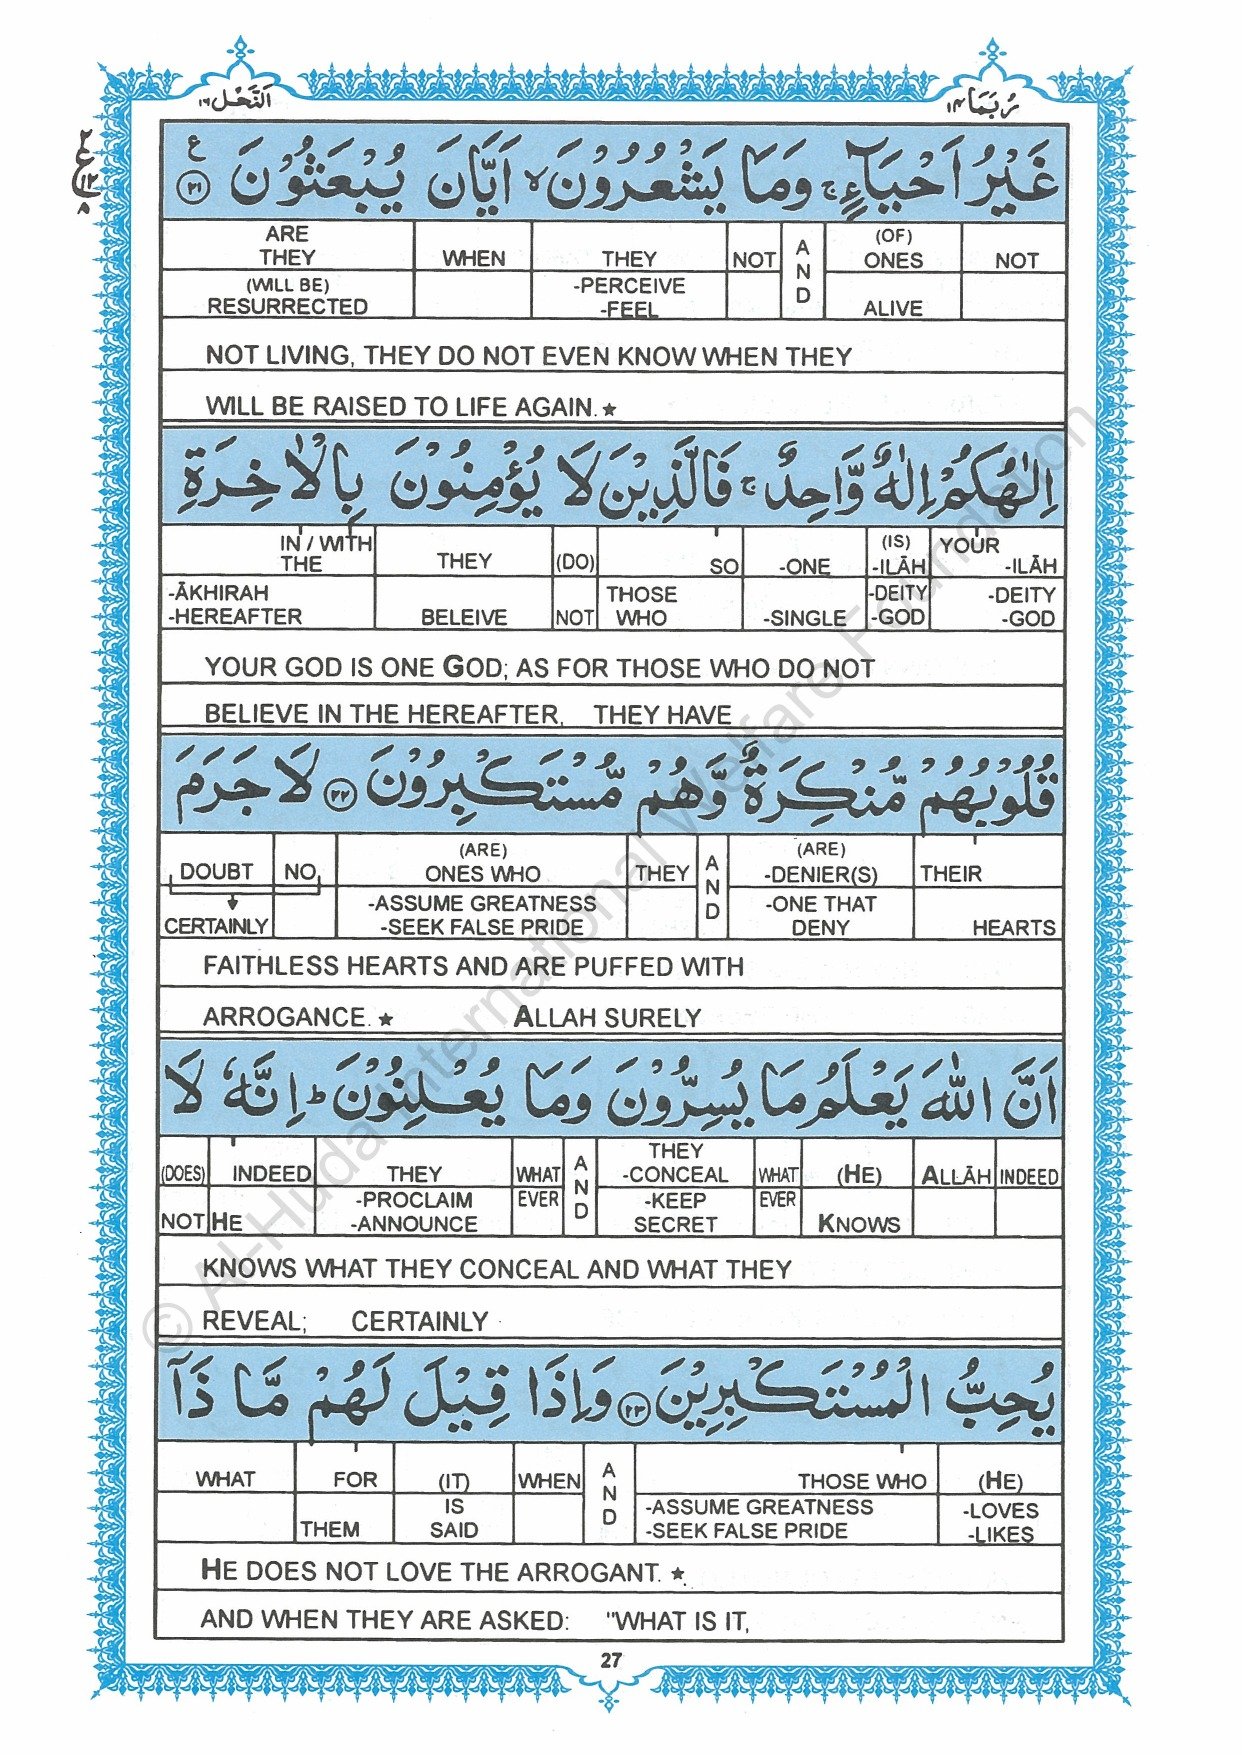 النَّحْل ١٦
رُبَمَا ١٤
٢
ع
١٢
٨
غَيْرُ اَحْيَآءٍ ۚ وَمَا يَشْعُرُوْنَ ۙ اَيَّانَ يُبْعَثُوْنَ ۝٢١ ع
ARE THEY WHEN THEY NOT AND (OF) ONES NOT
(WILL BE) RESURRECTED -PERCEIVE -FEEL ALIVE
NOT LIVING, THEY DO NOT EVEN KNOW WHEN THEY
WILL BE RAISED TO LIFE AGAIN. ★
اِلٰهُكُمْ اِلٰهٌ وَّاحِدٌ ۚ فَالَّذِيْنَ لَا يُؤْمِنُوْنَ بِالْاٰخِرَةِ
IN / WITH THE THEY (DO) SO -ONE (IS) -ILĀH YOUR -ILĀH
-ĀKHIRAH -HEREAFTER BELEIVE NOT THOSE WHO -SINGLE -DEITY -GOD -DEITY -GOD
YOUR GOD IS ONE GOD; AS FOR THOSE WHO DO NOT
BELIEVE IN THE HEREAFTER, THEY HAVE
قُلُوْبُهُمْ مُّنْكِرَةٌ وَّهُمْ مُّسْتَكْبِرُوْنَ ۝٢٢ لَا جَرَمَ
DOUBT NO (ARE) ONES WHO THEY AND (ARE) -DENIER(S) THEIR
CERTAINLY -ASSUME GREATNESS -SEEK FALSE PRIDE -ONE THAT DENY HEARTS
FAITHLESS HEARTS AND ARE PUFFED WITH
ARROGANCE. ★ ALLAH SURELY
اَنَّ اللّٰهَ يَعْلَمُ مَا يُسِرُّوْنَ وَمَا يُعْلِنُوْنَ ؕ اِنَّهٗ لَا
(DOES) INDEED THEY WHAT AND THEY -CONCEAL WHAT (HE) ALLĀH INDEED
NOT HE -PROCLAIM -ANNOUNCE EVER -KEEP SECRET EVER KNOWS
KNOWS WHAT THEY CONCEAL AND WHAT THEY
REVEAL; CERTAINLY
يُحِبُّ الْمُسْتَكْبِرِيْنَ ۝٢٣ وَاِذَا قِيْلَ لَهُمْ مَّا ذَآ
WHAT FOR (IT) WHEN AND THOSE WHO (HE)
THEM IS SAID -ASSUME GREATNESS -SEEK FALSE PRIDE -LOVES -LIKES
HE DOES NOT LOVE THE ARROGANT. ★
AND WHEN THEY ARE ASKED: "WHAT IS IT,
27
© Al-Huda International Welfare Foundation